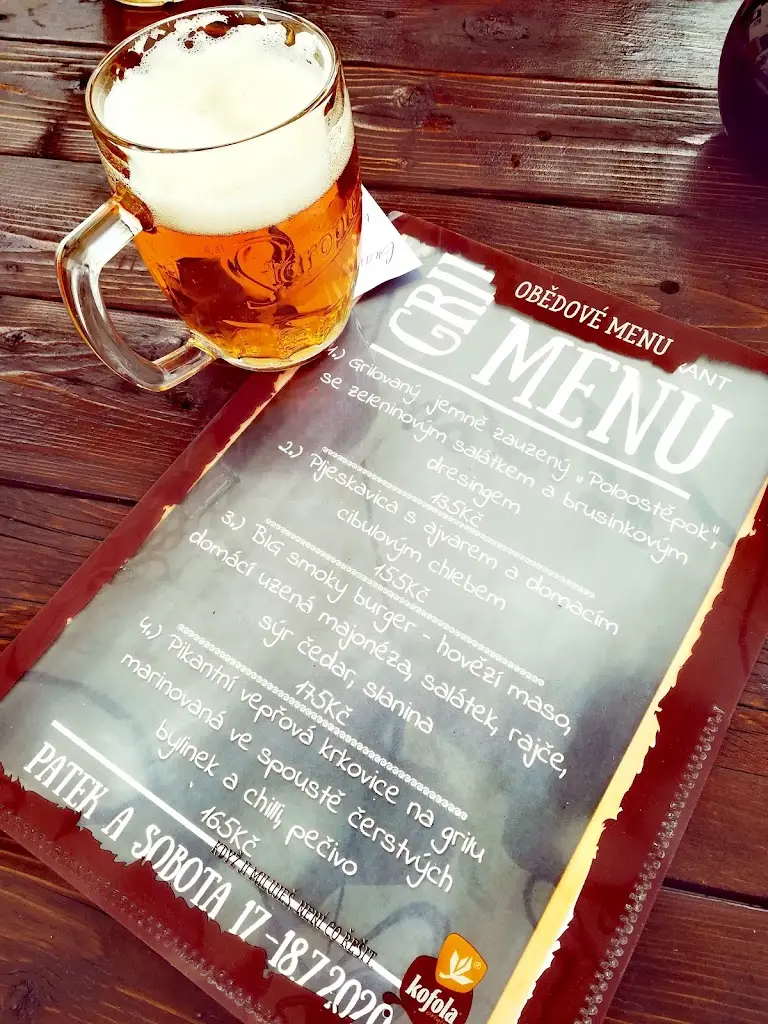 Staropramen
OBĚDOVÉ MENU
GRIL
MENU
1.) Grilovaný jemně zauzený „Poloostěpok",
se zeleninovým salátkem a brusinkovým
dresingem
135Kč
2.) Pljeskavica s ajvarem a domácím
cibulovým chlebem
155Kč
3.) BIG smoky burger - hovězí maso,
domácí uzená majonéza, salátek, rajče,
sýr čedar, slanina
175Kč
4.) Pikantní vepřová krkovice na grilu
marinovaná ve spoustě čerstvých
bylinek a chilli, pečivo
165Kč
KDYŽ JI MILUJEŠ, NENÍ CO ŘEŠIT
PÁTEK A SOBOTA 17-18.7.2020
kofola